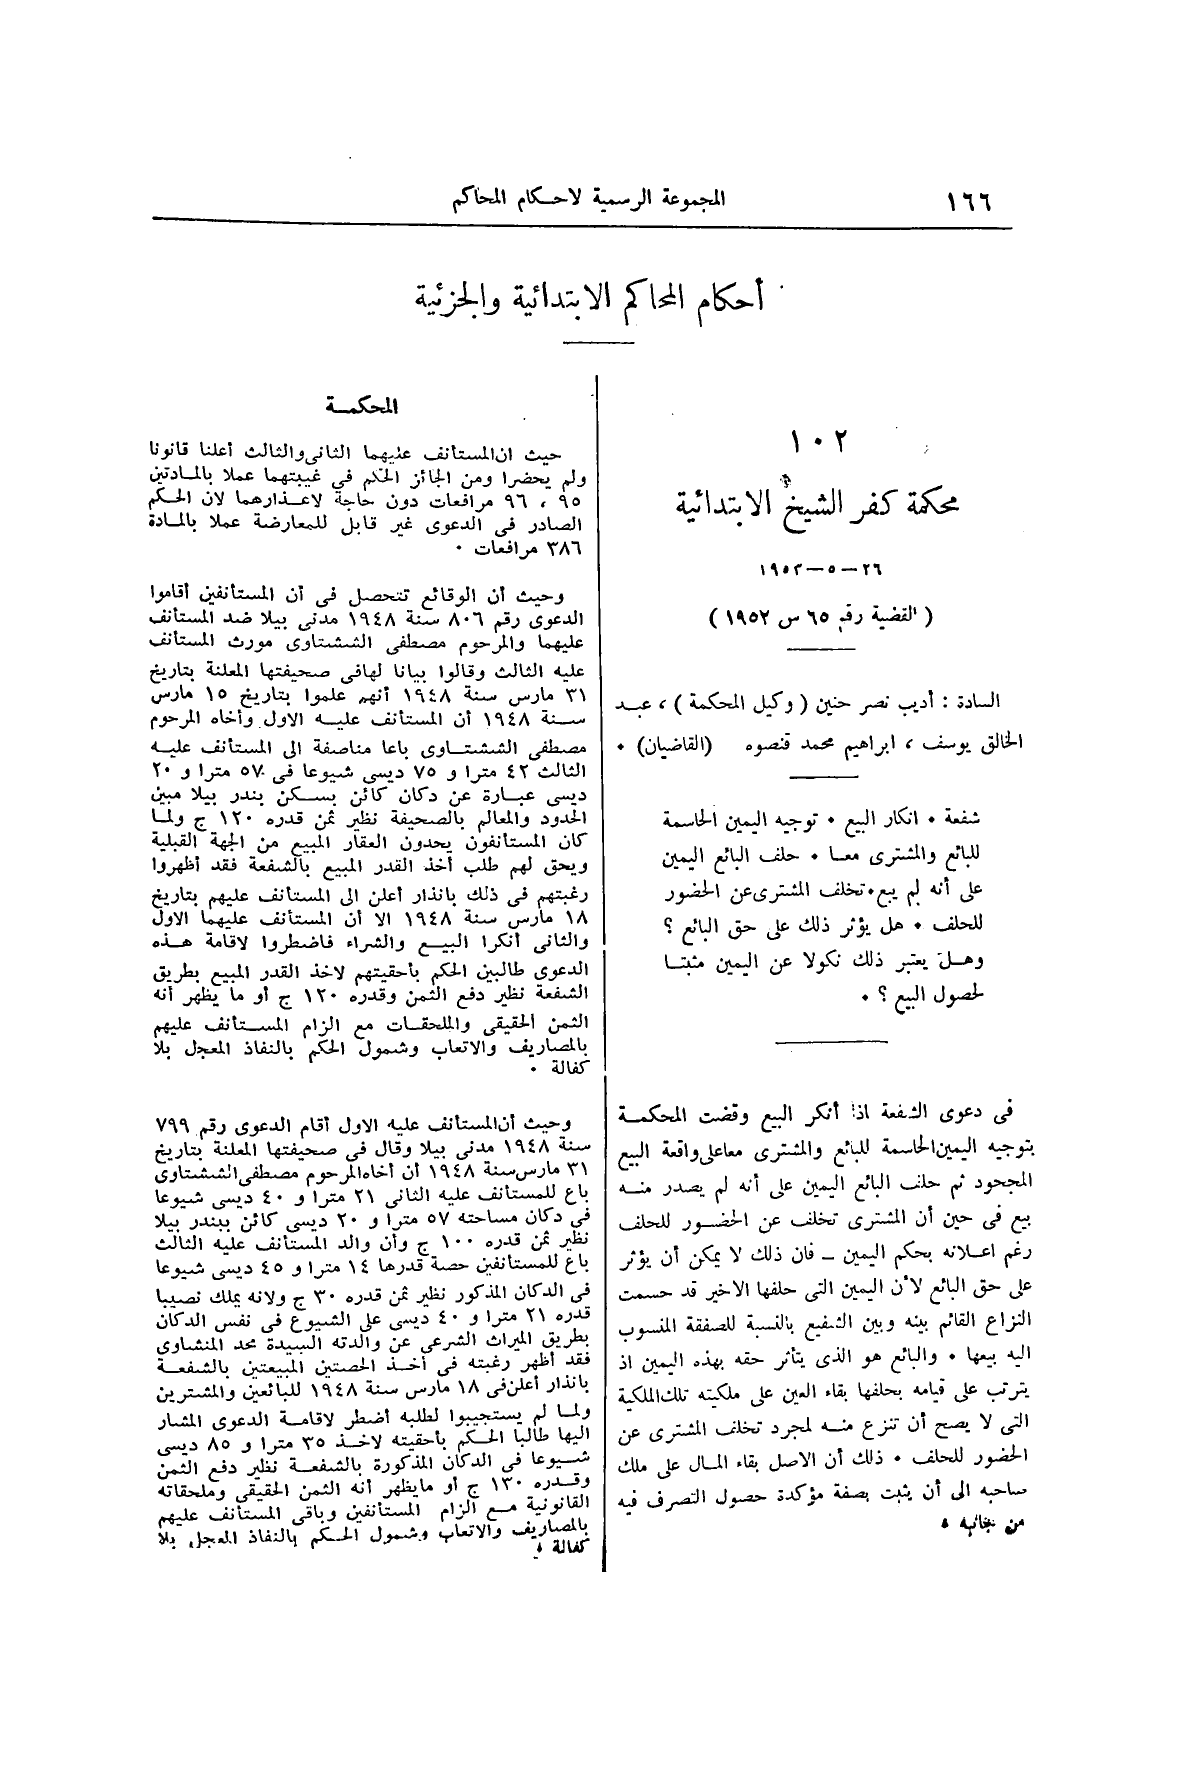 ١٦٦
المجموعة الرسمية لاحكام المحاكم
أحكام المحاكم الابتدائية والجزئية
١٠٢
محكمة كفر الشيخ الابتدائية
٢٦ – ٥ – ١٩٥٣
( القضية رقم ٦٥ س ١٩٥٢ )
السادة : أديب نصر حنين ( وكيل المحكمة ) ، عبد
الخالق يوسف ، ابراهيم محمد قنصوه (القاضيان) ٠
شفعة ٠ انكار البيع ٠ توجيه اليمين الحاسمة
للبائع والمشترى معا ٠ حلف البائع اليمين
على أنه لم يبع ٠ تخلف المشترى عن الحضور
للحلف ٠ هل يؤثر ذلك على حق البائع ؟
وهل يعتبر ذلك نكولا عن اليمين مثبتا
لحصول البيع ؟ ٠
فى دعوى الشفعة اذا أنكر البيع وقضت المحكمة
بتوجيه اليمين الحاسمة للبائع والمشترى معا على واقعة البيع
المجحود ثم حلف البائع اليمين على أنه لم يصدر منه
بيع فى حين أن المشترى تخلف عن الحضور للحلف
رغم اعلانه بحكم اليمين – فان ذلك لا يمكن أن يؤثر
على حق البائع لأن اليمين التى حلفها الاخير قد حسمت
النزاع القائم بينه وبين الشفيع بالنسبة للصفقة المنسوب
اليه بيعها ٠ والبائع هو الذى يتأثر حقه بهذه اليمين اذ
يترتب على قيامه بحلفها بقاء العين على ملكيته تلك الملكية
التى لا يصح أن تنزع منه لمجرد تخلف المشترى عن
الحضور للحلف ٠ ذلك أن الاصل بقاء المال على ملك
صاحبه الى أن يثبت بصفة مؤكدة حصول التصرف فيه
من جانبه ٠
المحكمة
حيث ان المستأنف عليهما الثانى والثالث أعلنا قانونا
ولم يحضرا ومن الجائز الحكم فى غيبتهما عملا بالمادتين
٩٥ ، ٩٦ مرافعات دون حاجة لاعذارهما لان الحكم
الصادر فى الدعوى غير قابل للمعارضة عملا بالمادة
٣٨٦ مرافعات ٠
وحيث أن الوقائع تتحصل فى أن المستأنفين أقاموا
الدعوى رقم ٨٠٦ سنة ١٩٤٨ مدنى بيلا ضد المستأنف
عليهما والمرحوم مصطفى الششتاوى مورث المستأنف
عليه الثالث وقالوا بيانا لها فى صحيفتها المعلنة بتاريخ
٣١ مارس سنة ١٩٤٨ أنهم علموا بتاريخ ١٥ مارس
سنة ١٩٤٨ أن المستأنف عليه الاول وأخاه المرحوم
مصطفى الششتاوى باعا مناصفة الى المستأنف عليه
الثالث ٤٢ مترا و ٧٥ ديسى شيوعا فى ٥٧ مترا و ٢٠
ديسى عبارة عن دكان كائن بسكن بندر بيلا مبين
الحدود والمعالم بالصحيفة نظير ثمن قدره ١٢٠ ج ولما
كان المستأنفون يحدون العقار المبيع من الجهة القبلية
ويحق لهم طلب أخذ القدر المبيع بالشفعة فقد أظهروا
رغبتهم فى ذلك بانذار أعلن الى المستأنف عليهم بتاريخ
١٨ مارس سنة ١٩٤٨ الا أن المستأنف عليهما الاول
والثانى أنكرا البيع والشراء فاضطروا لاقامة هذه
الدعوى طالبين الحكم بأحقيتهم لاخذ القدر المبيع بطريق
الشفعة نظير دفع الثمن وقدره ١٢٠ ج أو ما يظهر أنه
الثمن الحقيقى والملحقات مع الزام المستأنف عليهم
بالمصاريف والاتعاب وشمول الحكم بالنفاذ المعجل بلا
كفالة ٠
وحيث أن المستأنف عليه الاول أقام الدعوى رقم ٧٩٩
سنة ١٩٤٨ مدنى بيلا وقال فى صحيفتها المعلنة بتاريخ
٣١ مارس سنة ١٩٤٨ أن أخاه المرحوم مصطفى الششتاوى
باع للمستأنف عليه الثانى ٢١ مترا و ٤٠ ديسى شيوعا
فى دكان مساحته ٥٧ مترا و ٢٠ ديسى كائن ببندر بيلا
نظير ثمن قدره ١٠٠ ج وأن والد المستأنف عليه الثالث
باع للمستأنفين حصة قدرها ١٤ مترا و ٤٥ ديسى شيوعا
فى الدكان المذكور نظير ثمن قدره ٣٠ ج ولانه يملك نصيبا
قدره ٢١ مترا و ٤٠ ديسى على الشيوع فى نفس الدكان
بطريق الميراث الشرعى عن والدته السيدة محمد المنشاوى
فقد أظهر رغبته فى أخذ الحصتين المبيعتين بالشفعة
بانذار أعلن فى ١٨ مارس سنة ١٩٤٨ للبائعين والمشترين
ولما لم يستجيبوا لطلبه أضطر لاقامة الدعوى المشار
اليها طالبا الحكم بأحقيته لاخذ ٣٥ مترا و ٨٥ ديسى
شيوعا فى الدكان المذكورة بالشفعة نظير دفع الثمن
وقدره ١٣٠ ج أو ما يظهر أنه الثمن الحقيقى وملحقاته
القانونية مع الزام المستأنفين وباقى المستأنف عليهم
بالمصاريف والاتعاب وشمول الحكم بالنفاذ المعجل بلا
كفالة ٠